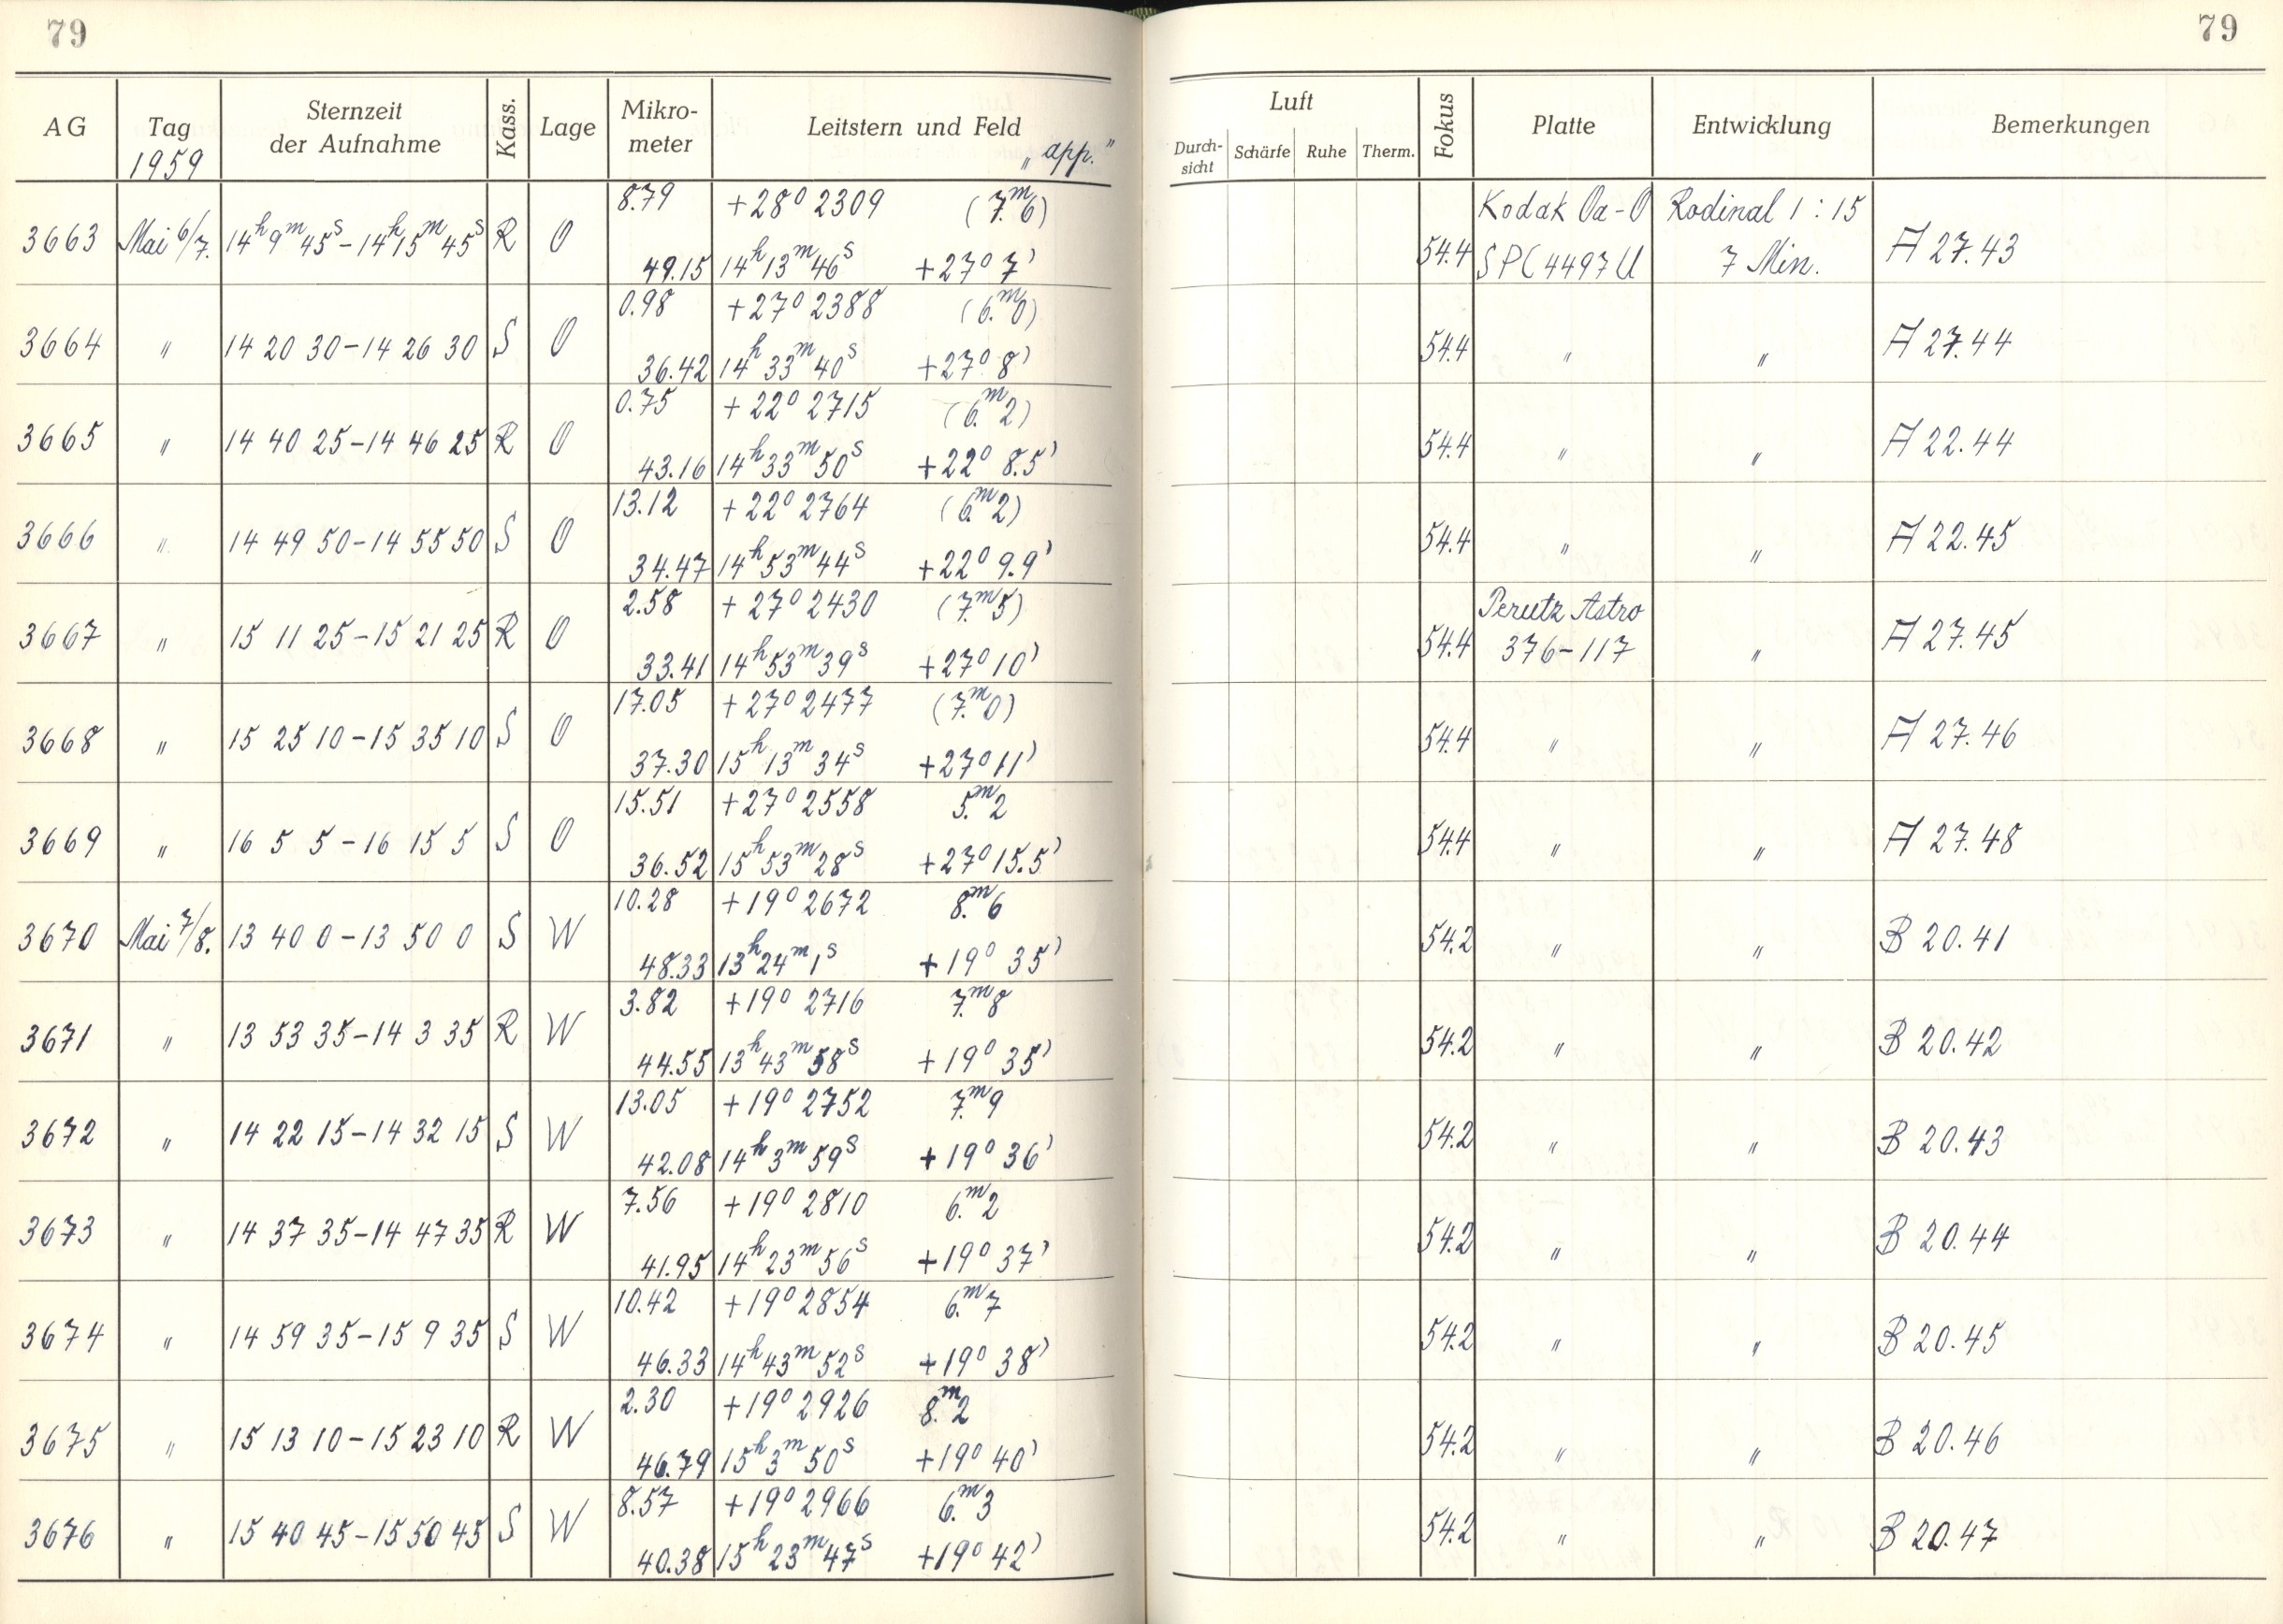 79
79
AG Tag 1959 Sternzeit der Aufnahme Kass. Lage Mikro-meter Leitstern und Feld „app."
Luft Durch-sicht Schärfe Ruhe Therm. Fokus Platte Entwicklung Bemerkungen
8.79 +28° 2309 (7.ᵐ6) Kodak Oa-O Rodinal 1:15
3663 Mai 6/7. 14ʰ9ᵐ45ˢ-14ʰ15ᵐ45ˢ R O 49.15 14ʰ13ᵐ46ˢ +27° 7' 54.4 SPC4497U 7 Min. A 27.43
0.98 +27° 2388 (6.ᵐ0)
3664 " 14 20 30-14 26 30 S O 36.42 14ʰ33ᵐ40ˢ +27° 8' 54.4 " " A 27.44
0.75 +22° 2715 (6.ᵐ2)
3665 " 14 40 25-14 46 25 R O 43.16 14ʰ33ᵐ50ˢ +22° 8.5' 54.4 " " A 22.44
13.12 +22° 2764 (6.ᵐ2)
3666 " 14 49 50-14 55 50 S O 34.47 14ʰ53ᵐ44ˢ +22° 9.9' 54.4 " " A 22.45
2.58 +27° 2430 (7.ᵐ5) Perutz Astro
3667 " 15 11 25-15 21 25 R O 33.41 14ʰ53ᵐ39ˢ +27° 10' 54.4 376-117 " A 27.45
17.05 +27° 2477 (7.ᵐ0)
3668 " 15 25 10-15 35 10 S O 37.30 15ʰ13ᵐ34ˢ +27° 11' 54.4 " " A 27.46
15.51 +27° 2558 5.ᵐ2
3669 " 16 5 5-16 15 5 S O 36.52 15ʰ53ᵐ28ˢ +27° 15.5' 54.4 " " A 27.48
10.28 +19° 2672 8.ᵐ6
3670 Mai 7/8. 13 40 0-13 50 0 S W 48.33 13ʰ24ᵐ1ˢ +19° 35' 54.2 " " B 20.41
3.82 +19° 2716 7.ᵐ8
3671 " 13 53 35-14 3 35 R W 44.55 13ʰ43ᵐ58ˢ +19° 35' 54.2 " " B 20.42
13.05 +19° 2752 7.ᵐ9
3672 " 14 22 15-14 32 15 S W 42.08 14ʰ3ᵐ59ˢ +19° 36' 54.2 " " B 20.43
7.56 +19° 2810 6.ᵐ2
3673 " 14 37 35-14 47 35 R W 41.95 14ʰ23ᵐ56ˢ +19° 37' 54.2 " " B 20.44
10.42 +19° 2854 6.ᵐ7
3674 " 14 59 35-15 9 35 S W 46.33 14ʰ43ᵐ52ˢ +19° 38' 54.2 " " B 20.45
2.30 +19° 2926 8.ᵐ2
3675 " 15 13 10-15 23 10 R W 46.79 15ʰ3ᵐ50ˢ +19° 40' 54.2 " " B 20.46
8.57 +19° 2966 6.ᵐ3
3676 " 15 40 45-15 50 45 S W 40.38 15ʰ23ᵐ47ˢ +19° 42' 54.2 " " B 20.47